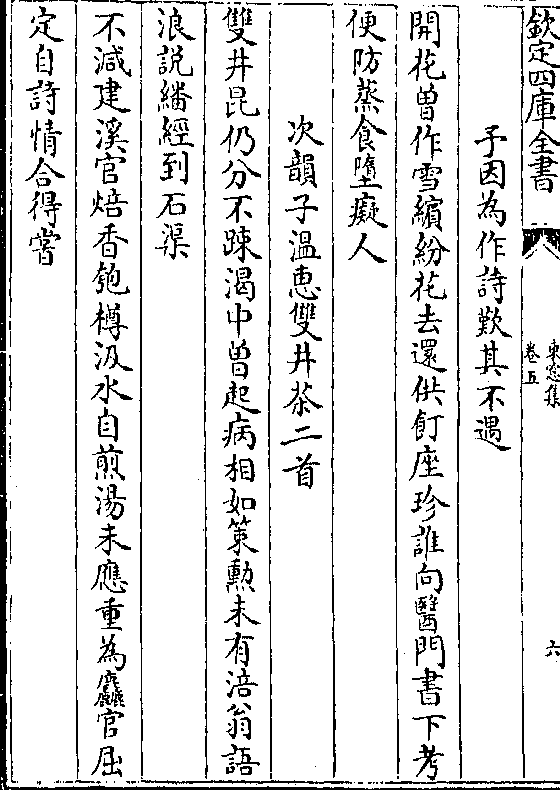 欽定四庫全書
東窓集
卷五
六
予因為作詩歎其不遇
開花曽作雪繽紛花去還供飣座珍誰向醫門書下考
便防蒸食墮癡人
次韻子温惠雙井茶二首
雙井昆仍分不踈渴中曽起病相如策勲未有涪翁語
浪説繙經到石渠
不減建溪官焙香匏樽汲水自煎湯未應重為麤官屈
定自詩情合得嘗